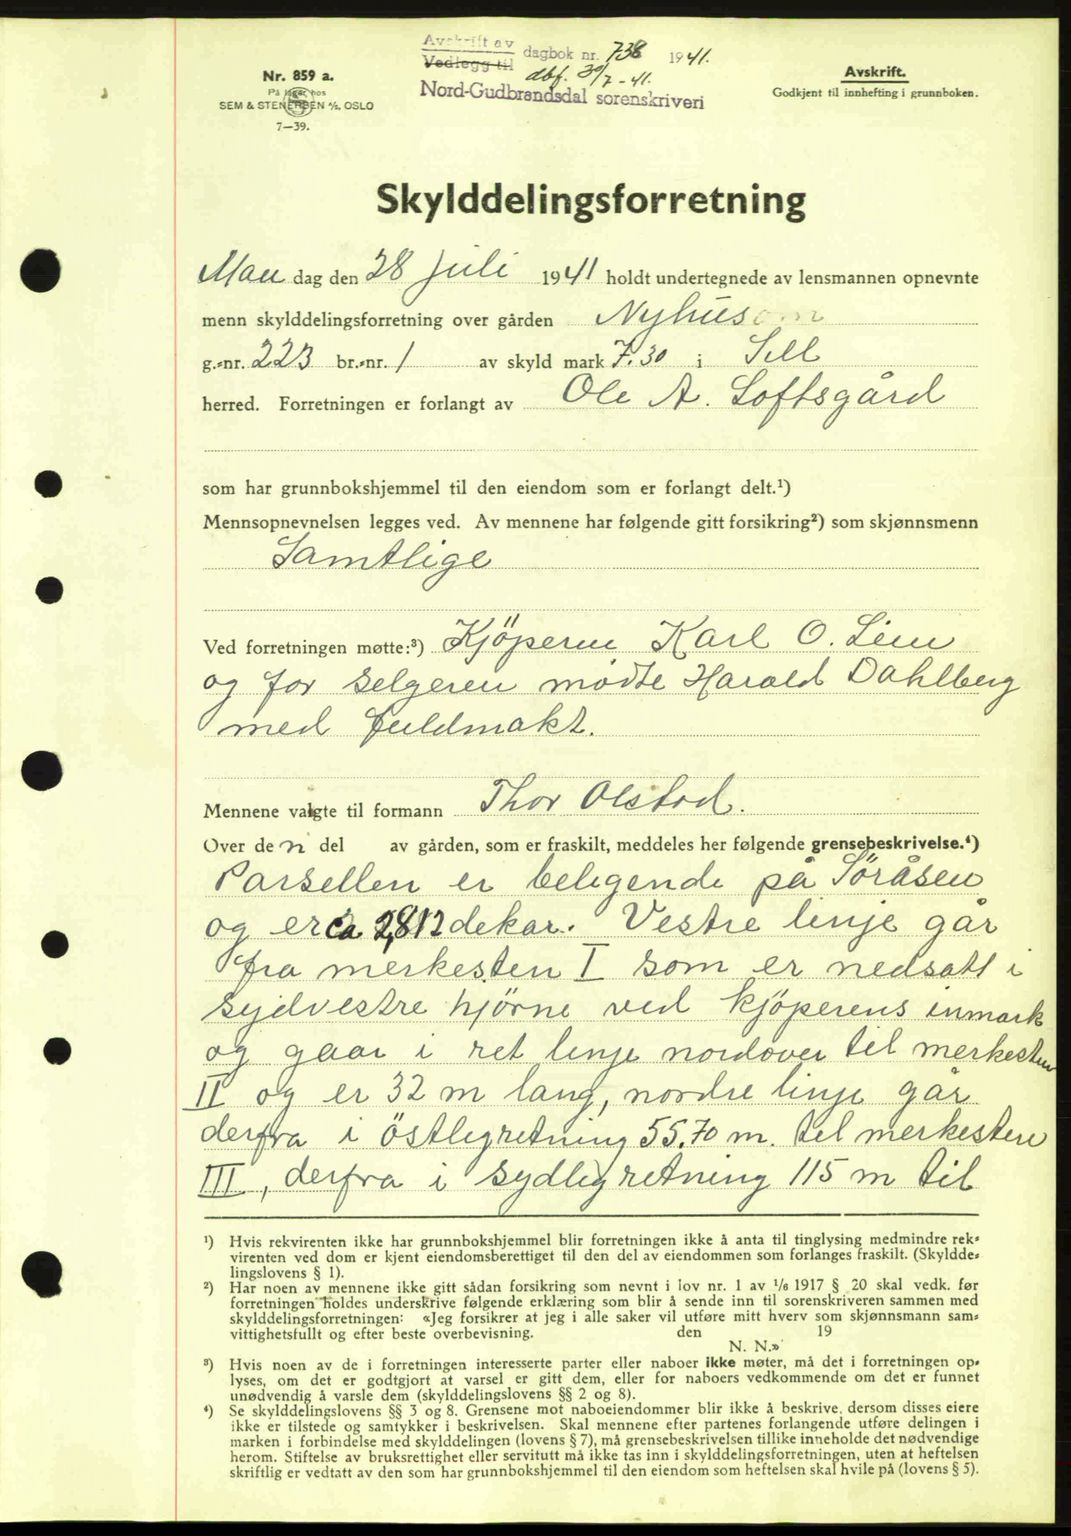 Avskrift av
Vedlegg til dagbok nr. 738 1941.
dbf. 30/7-41.
Nord-Gudbrandsdal sorenskriveri
Nr. 859 a.
På lager hos
SEM & STENERSEN A/S. OSLO
7—39.
Avskrift.
Godkjent til innhefting i grunnboken.
Skylddelingsforretning
Man dag den 28 juli 1941 holdt undertegnede av lensmannen opnevnte
menn skylddelingsforretning over gården Nyhusom
g.-nr. 223 br.-nr. 1 av skyld mark 7.30 i Sell
herred. Forretningen er forlangt av Ole A. Loftsgård
som har grunnbokshjemmel til den eiendom som er forlangt delt.¹)
Mennsopnevnelsen legges ved. Av mennene har følgende gitt forsikring²) som skjønnsmenn
Samtlige
Ved forretningen møtte:³) Kjöperen Karl O. Lien
og for selgeren mødte Harald Dahlberg
med fuldmakt.
Mennene valgte til formann Thor Olstad.
Over den del av gården, som er fraskilt, meddeles her følgende grensebeskrivelse.⁴)
Parsellen er beligende på Söråsen
og er ca 2,812 dekar. Vestre linje går
fra merkesten I som er nedsatt i
sydvestre hjörne ved kjöperens inmark
og gaar i ret linje nordover til merkesten
II og er 32 m lang, nordre linje går
derfra i östligretning 55.70 m. til merkesten
III, derfra i sydligretning 115 m til
¹) Hvis rekvirenten ikke har grunnbokshjemmel blir forretningen ikke å anta til tinglysing medmindre rek-
virenten ved dom er kjent eiendomsberettiget til den del av eiendommen som forlanges fraskilt. (Skyldde-
lingslovens § 1).
²) Har noen av mennene ikke gitt sådan forsikring som nevnt i lov nr. 1 av 1/6 1917 § 20 skal vedk. før
forretningen holdes underskrive følgende erklæring som blir å sende inn til sorenskriveren sammen med
skylddelingsforretningen: «Jeg forsikrer at jeg i alle saker vil utføre mitt hverv som skjønnsmann sam-
vittighetsfullt og efter beste overbevisning. den 19
N. N.»
³) Hvis noen av de i forretningen interesserte parter eller naboer ikke møter, må det i forretningen op-
lyses, om det er godtgjort at varsel er gitt dem, eller for naboers vedkommende om det er funnet
unødvendig å varsle dem (skylddelingslovens §§ 2 og 8).
⁴) Se skylddelingslovens §§ 3 og 8. Grensene mot naboeiendommer blir ikke å beskrive, dersom disses eiere
ikke er tilstede og samtykker i beskrivelsen. Skal mennene efter partenes forlangende utføre delingen i
marken i forbindelse med skylddelingen (lovens § 7), må grensebeskrivelsen tillike inneholde det nødvendige
herom. Stiftelse av bruksrettighet eller servitutt må ikke tas inn i skylddelingsforretningen, uten at heftelsen
skriftlig er vedtatt av den som har grunnbokshjemmel til den eiendom som heftelsen skal hvile på (lovens § 5).